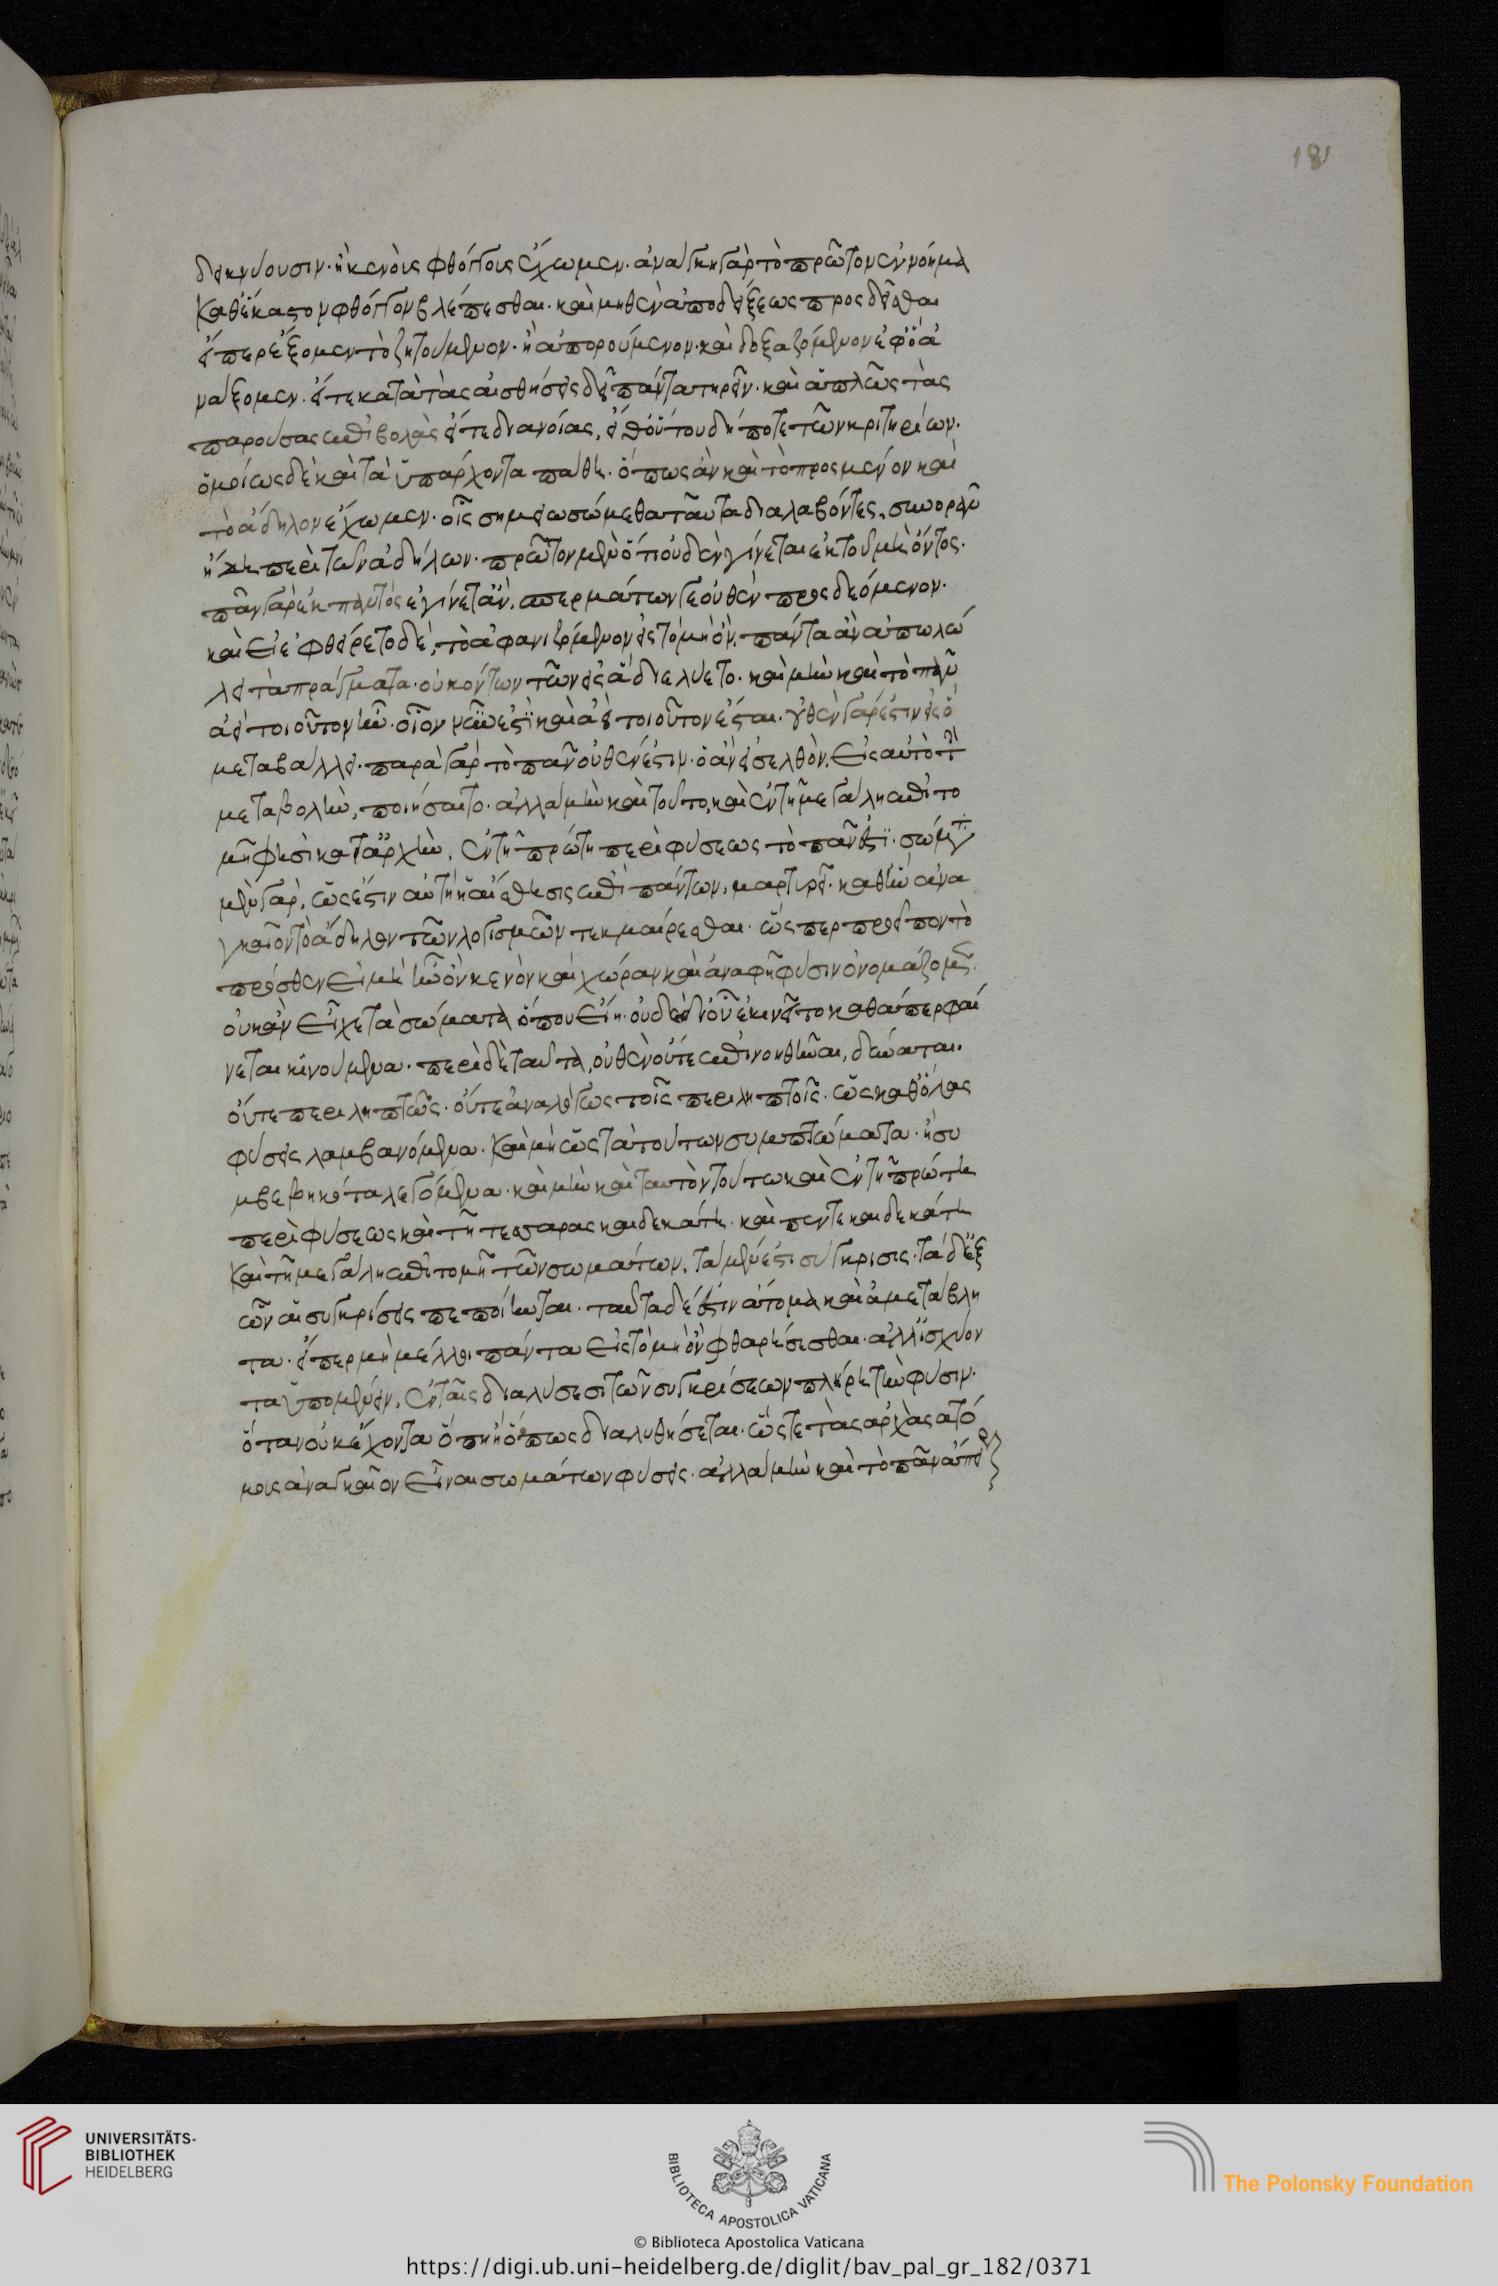 181
δεικνύουσιν· ἢ κενοὺς φθόγγους ἔχωμεν. ἀνάγκη γὰρ τὸ πρῶτον ἐννόημα
καθ' ἕκαστον φθόγγον βλέπεσθαι. καὶ μηθὲν ἀποδείξεως προσδεῖσθαι
εἴπερ ἕξομεν τὸ ζητούμενον· ἢ ἀπορούμενον· καὶ δοξαζόμενον ἐφ' ὃ ἀ
νάξομεν. εἴτε κατὰ τὰς αἰσθήσεις δεῖ πάντα τηρεῖν. καὶ ἁπλῶς τὰς
παρούσας ἐπιβολὰς εἴτε διανοίας, εἴθ' ὅτου δήποτε τῶν κριτηρίων.
ὁμοίως δὲ καὶ τὰ ὑπάρχοντα πάθη. ὅπως ἂν καὶ τὸ προσμένον καὶ
τὸ ἄδηλον ἔχωμεν. οἷς σημειωσόμεθα ταῦτα διαλαβόντες, συνορᾶν
ἤδη περὶ τῶν ἀδήλων. πρῶτον μὲν ὅτι οὐδὲν γίνεται ἐκ τοῦ μὴ ὄντος.
πᾶν γὰρ ἐκ παντὸς ἐγίνετ' ἄν, σπερμάτων γε οὐθὲν προσδεόμενον.
καὶ εἰ ἐφθείρετο δὲ, τὸ ἀφανιζόμενον εἰς τὸ μὴ ὄν. πάντα ἂν ἀπωλώ
λει τὰ πράγματα. οὐκ ὄντων τῶν εἰς ἃ διελύετο. καὶ μὴν καὶ τὸ πᾶν
ἀεὶ τοιοῦτον ἦν. οἷον νῦν ἐστι καὶ ἀεὶ τοιοῦτον ἔσται. οὐθὲν γάρ ἐστιν εἰς ὃ
μεταβάλλει. παρὰ γὰρ τὸ πᾶν οὐθέν ἐστιν. ὃ ἂν εἰσελθὸν εἰς αὐτὸ τὴν
μεταβολὴν, ποιήσαιτο. ἀλλὰ μὴν καὶ τοῦτο, καὶ ἐν τῇ μεγάλῃ ἐπιτο
μῇ φησὶ κατ' ἀρχὴν, ἐν τῇ πρώτῃ περὶ φύσεως τὸ πᾶν ἐστι. σώματα
μὲν γὰρ, ὡς ἔστιν αὐτὴ ἡ αἴσθησις ἐπὶ πάντων, μαρτυρεῖ. καθ' ἣν ἀνα
γκαῖον τὸ ἄδηλον τῶν λογισμῶν τεκμαίρεσθαι. ὥσπερ προεῖπον τὸ
πρόσθεν εἰ μὴ ἦν ὃν κενὸν καὶ χώραν καὶ ἀναφῆ φύσιν ὀνομάζομεν.
οὐκ ἂν εἶχε τὰ σώματα ὅπου εἴη· οὐδὲ δι' οὗ ἐκινεῖτο καθάπερ φαί
νεται κινούμενα. περὶ δὲ ταῦτα, οὐθὲν οὔτε ἐπινοηθῆναι, δύναται.
οὔτε περιληπτῶς. οὔτε ἀναλόγως τοῖς περιληπτοῖς. ὡς καθ' ὅλας
φύσεις λαμβανόμενα. καὶ μὴ ὡς τὰ τούτων συμπτώματα. ἢ συ
μβεβηκότα λεγόμενα. καὶ μὴν καὶ ταυτὸν τούτω καὶ ἐν τῇ πρώτῃ
περὶ φύσεως καὶ τῇ τεσσαρασκαιδεκάτῃ. καὶ πεντεκαιδεκάτῃ
καὶ τῇ μεγάλῃ ἐπιτομῇ τῶν σωμάτων, τὰ μέν ἐστι συγκρίσις. τὰ δ' ἐξ
ὧν αἱ συγκρίσεις πεποίηνται. ταῦτα δέ ἐστιν ἄτομα καὶ ἀμετάβλη
τα. εἴπερ μὴ μέλλοι πάντα εἰς τὸ μὴ ὂν φθαρήσεσθαι. ἀλλ' ἰσχύον
τα ὑπομένειν, ἐν ταῖς διαλύσεσι τῶν συγκρίσεων πλήρη τὴν φύσιν.
ὅταν οὐκ ἔχοντα ὅπη ἢ ὅπως διαλυθήσεται. ὥστε τὰς ἀρχὰς ἀτό
μους ἀναγκαῖον εἶναι σωμάτων φύσεις. ἀλλὰ μὴν καὶ τὸ πᾶν ἄπει
UNIVERSITÄTS-
BIBLIOTHEK
HEIDELBERG
BIBLIOTECA APOSTOLICA VATICANA
© Biblioteca Apostolica Vaticana
The Polonsky Foundation
https://digi.ub.uni-heidelberg.de/diglit/bav_pal_gr_182/0371